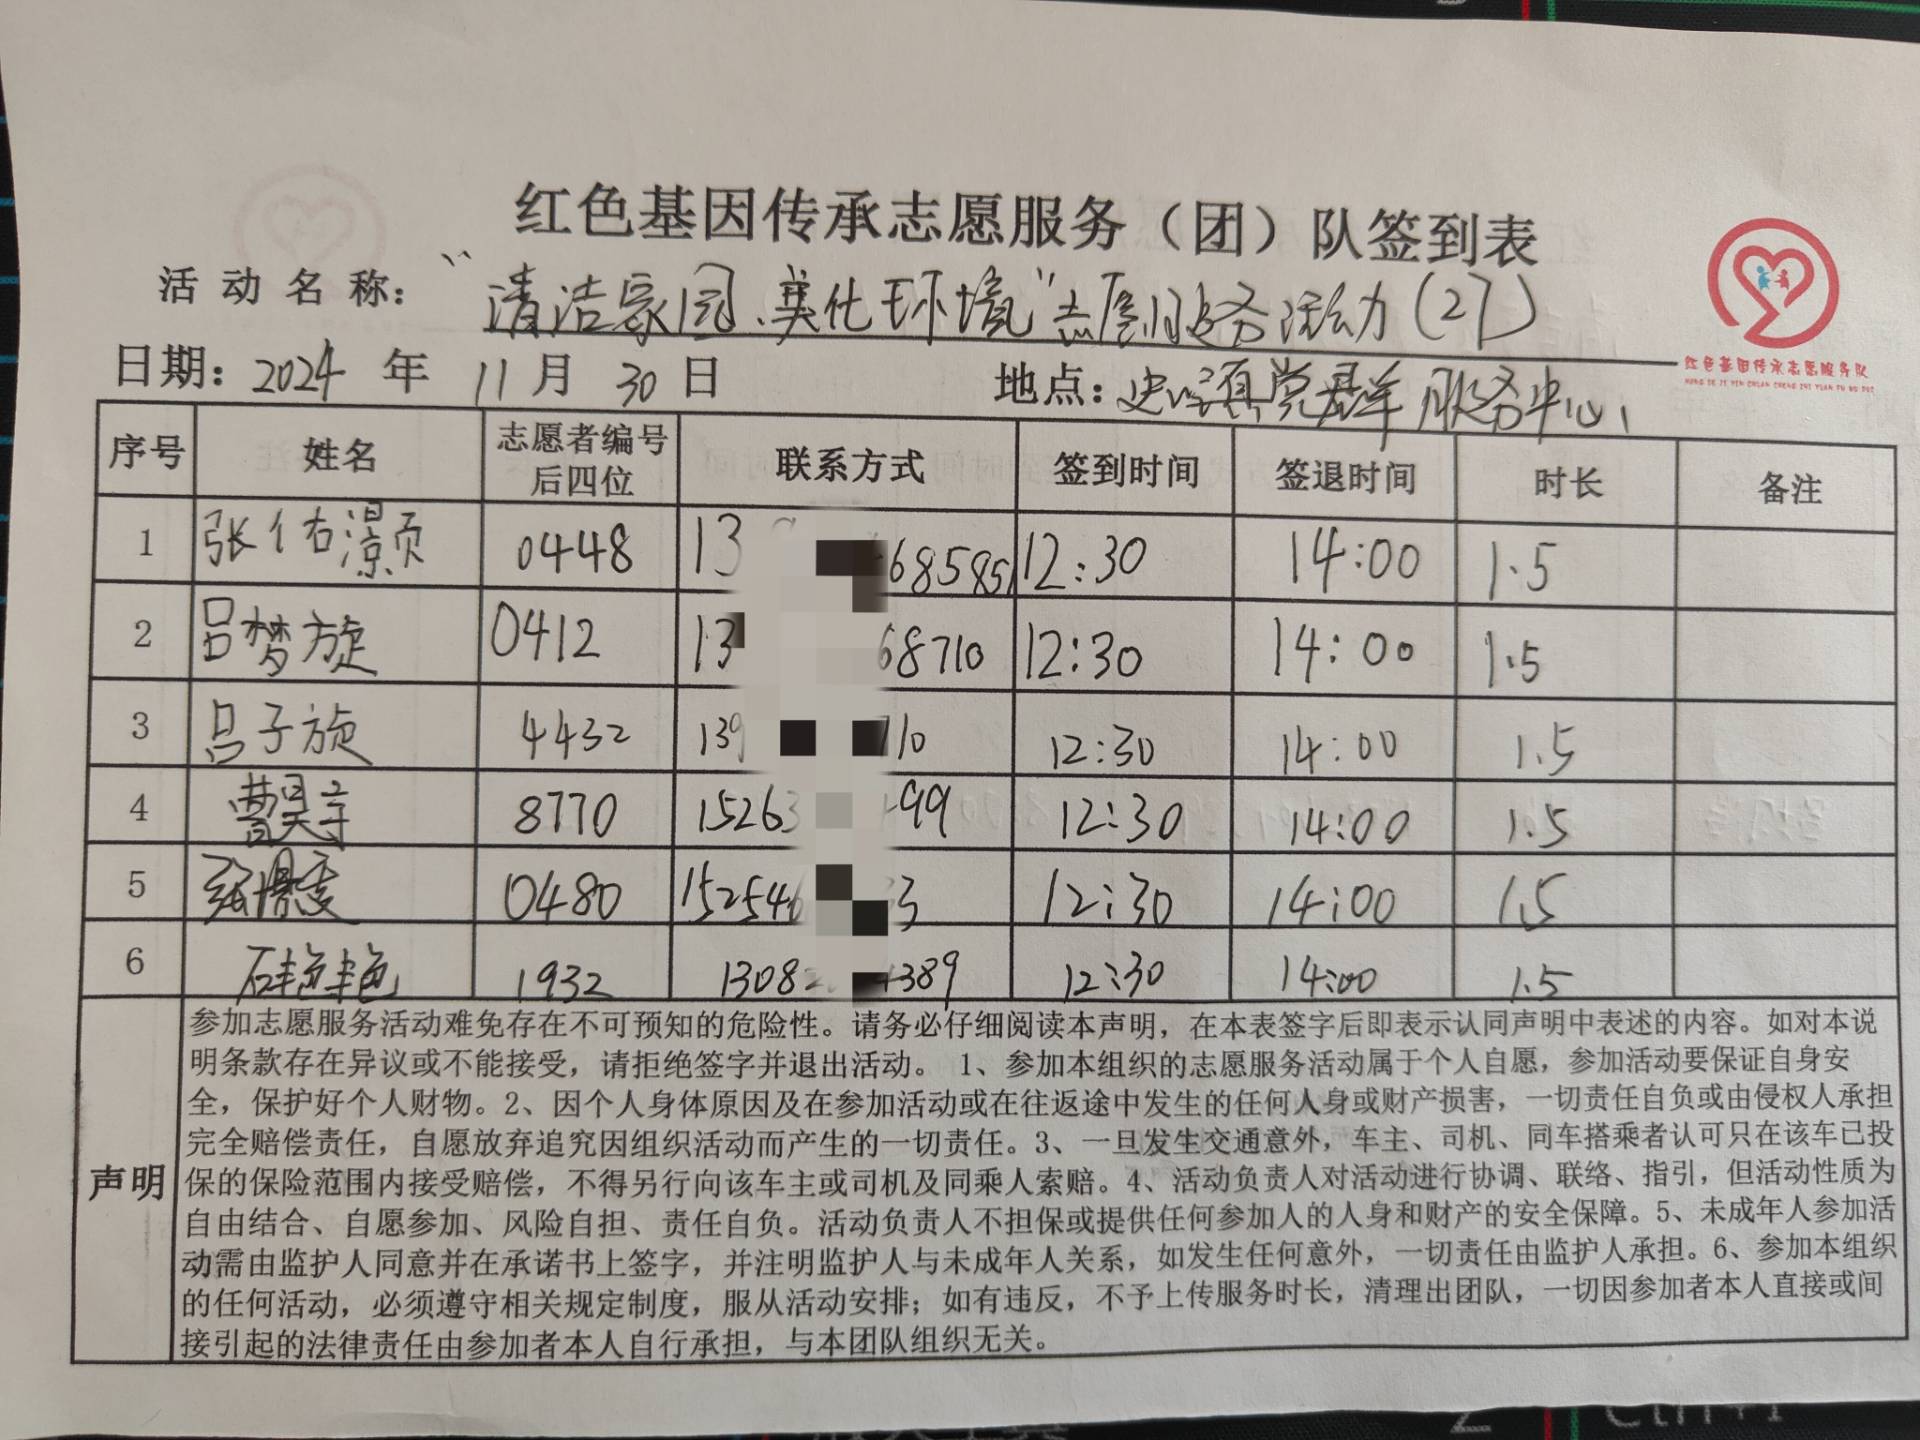 红色基因传承志愿服务（团）队签到表
活动名称："清洁家园、美化环境"志愿服务活动(27)
日期：2024年11月30日 地点：党群服务中心
红色基因传承志愿服务队
序号 姓名 志愿者编号后四位 联系方式 签到时间 签退时间 时长 备注
1 张佑灏 0448 13 685851 12:30 14:00 1.5
2 吕梦旋 0412 13 68710 12:30 14:00 1.5
3 吕子旋 4432 139 710 12:30 14:00 1.5
4 曹昊宇 8770 15263 99 12:30 14:00 1.5
5 张 0480 152546 33 12:30 14:00 1.5
6 石艳艳 1932 1308 389 12:30 14:00 1.5
声明
参加志愿服务活动难免存在不可预知的危险性。请务必仔细阅读本声明，在本表签字后即表示认同声明中表述的内容。如对本说
明条款存在异议或不能接受，请拒绝签字并退出活动。 1、参加本组织的志愿服务活动属于个人自愿，参加活动要保证自身安
全，保护好个人财物。2、因个人身体原因及在参加活动或在往返途中发生的任何人身或财产损害，一切责任自负或由侵权人承担
完全赔偿责任，自愿放弃追究因组织活动而产生的一切责任。3、一旦发生交通意外，车主、司机、同车搭乘者认可只在该车已投
保的保险范围内接受赔偿，不得另行向该车主或司机及同乘人索赔。4、活动负责人对活动进行协调、联络、指引，但活动性质为
自由结合、自愿参加、风险自担、责任自负。活动负责人不担保或提供任何参加人的人身和财产的安全保障。5、未成年人参加活
动需由监护人同意并在承诺书上签字，并注明监护人与未成年人关系，如发生任何意外，一切责任由监护人承担。6、参加本组织
的任何活动，必须遵守相关规定制度，服从活动安排；如有违反，不予上传服务时长，清理出团队，一切因参加者本人直接或间
接引起的法律责任由参加者本人自行承担，与本团队组织无关。